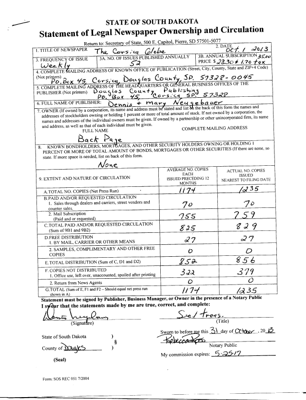 STATE OF SOUTH DAKOTA
Statement of Legal Newspaper Ownership and Circulation
Return to: Secretary of State, 500 E. Capitol, Pierre, SD 57501-5077
1. TITLE OF NEWSPAPER The Corsica Globe 2. DATE Oct 1 2013
3. FREQUENCY OF ISSUE Weekly 3A. NO. OF ISSUES PUBLISHED ANNUALLY 52 3B. ANNUAL SUBSCRIPTION PRICE
4. COMPLETE MAILING ADDRESS OF KNOWN OFFICE OF PUBLICATION (Street, City, County, State and ZIP+4 Code)
(Not printer) P.O. Box 45 Corsica, Douglas County, SD. 57328-0045
5. COMPLETE MAILING ADDRESS OF THE HEADQUARTERS OR GENERAL BUSINESS OFFICES OF THE
PUBLISHER (Not printer) Douglas County Publishing
P.O. Box 45, Corsica SD 57328
6. FULL NAME OF PUBLISHER: Dennis + Mary Neugebauer
7. OWNER (If owned by a corporation, its name and address must be stated and on the back of this form the names and
addresses of stockholders owning or holding 1 percent or more of total amount of stock. If not owned by a corporation, the
names and addresses of the individual owners must be given. If owned by a partnership or other unincorporated firm, its name
and address, as well as that of each individual must be given.
FULL NAME COMPLETE MAILING ADDRESS
Back Page
8. KNOWN BONDHOLDERS, MORTGAGEES, AND OTHER SECURITY HOLDERS OWNING OR HOLDING 1
PERCENT OR MORE OF TOTAL AMOUNT OF BONDS, MORTGAGES OR OTHER SECURITIES (If there are none, so
state. If more space is needed, list on back of this form.
None
9. EXTENT AND NATURE OF CIRCULATION AVERAGE NO. COPIES EACH ISSUED PRECEDING 12 MONTHS ACTUAL NO. COPIES ISSUED NEAREST TO FILING DATE
A. TOTAL NO. COPIES (Net Press Run) 1174 1235
B. PAID AND/OR REQUESTED CIRCULATION
1. Sales through dealers and carriers, street vendors and
counter sales. 70 70
2. Mail Subscription
(Paid and or requested) 755 759
C. TOTAL PAID AND/OR REQUESTED CIRCULATION
(Sum of 9B1 and 9B2) 825 829
D. FREE DISTRIBUTION
1. BY MAIL, CARRIER OR OTHER MEANS 27 27
2. SAMPLES, COMPLIMENTARY AND OTHER FREE
COPIES 0 0
E. TOTAL DISTRIBUTION (Sum of C, D1 and D2) 852 856
F. COPIES NOT DISTRIBUTED
1. Office use, left over, unaccounted, spoiled after printing 322 379
2. Return from News Agents 0 0
G. TOTAL (Sum of E, F1 and F2 - Should equal net press run
shown in A.) 1174 1235
Statement must be signed by Publisher, Business Manager, or Owner in the presence of a Notary Public
I certify that the statements made by me are true, correct, and complete:
(Signature) (Title)
State of South Dakota )
County of Douglas )
Sworn to before me this 31 day of October, 20
Notary Public
(Seal) My commission expires: 5-25-17
Form: SOS REC 051 7/2004